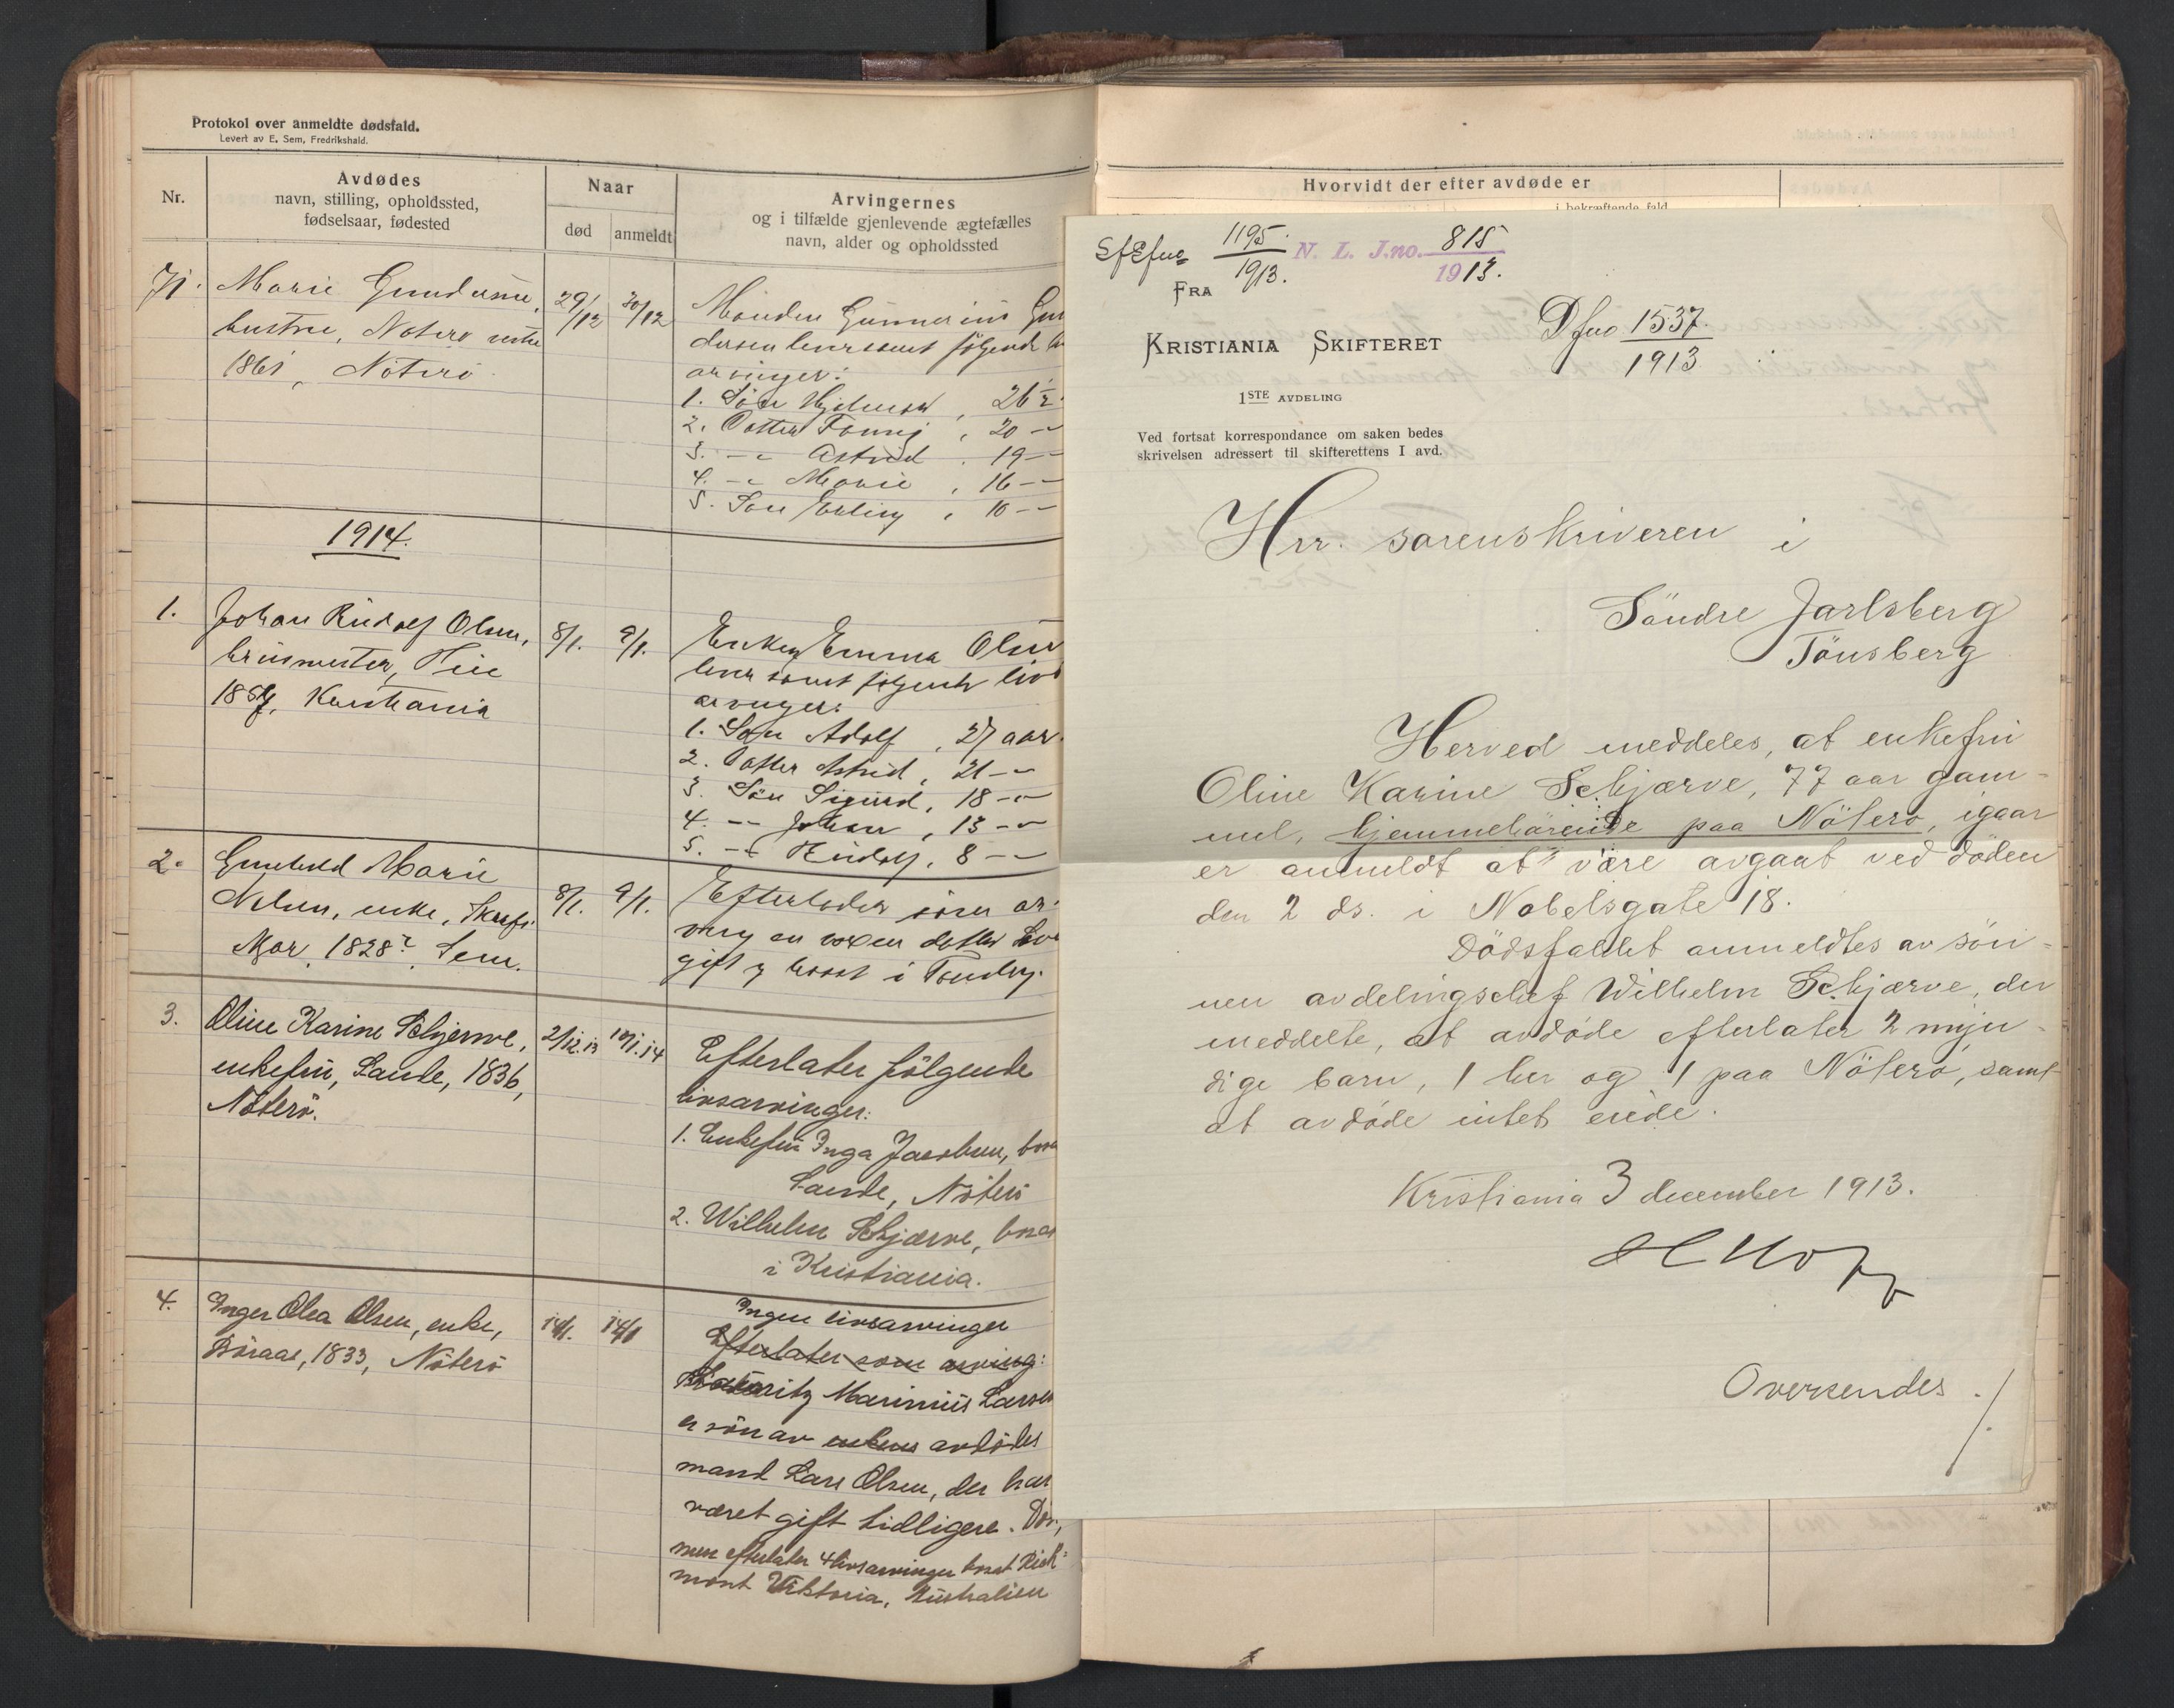 Protokol over anmeldte dødsfald.
Levert av E. Sem, Fredrikshald.
Nr.
Avdødes
navn, stilling, opholdssted,
fødselsaar, fødested
Naar
død
anmeldt
Arvingernes
og i tilfælde gjenlevende ægtefælles
navn, alder og opholdssted
71.
Marie Gundersen,
hustru, Nøterø
1861, Nøterø
29/12
30/12
Manden Gunnerius Gun
dersen lever samt følgende
arvinger:
1. Søn Hjalmar, 26 1/2
2. Datter Fanny, 20 --
3. -- Astrid, 19 --
4. -- Marie, 16 --
5. Søn Erling, 10 --
1914.
1.
Johan Rudolf Olsen,
Kristiania
8/1.
9/1.
Enken Emma Olsen
lever samt følgende livs
arvinger:
1. Søn Adolf, 27 aar
2. Datter Astrid, 21 --
3. Søn Sigurd, 18 --
4. -- Johan, 13 --
5. -- Rudolf, 8 --
2.
Gunhild Marie
Nilsen, enke,
1828?, Sem.
8/1.
9/1.
Efterlader som ar-
ving en voxen datter
gift og bosat i Tønsberg.
3.
Oline Karine Schjerve,
enkefru, Sande, 1836,
Nøterø.
2/12.13
10/1.14
Efterlater følgende
livsarvinger:
1. Enkefru Inga Jacobsen, bosa
Sande, Nøterø
2. Wilhelm Schjærve, bosat
i Kristiania.
4.
Inger Olea Olsen, enke,
Børaas, 1833, Nøterø
14/1.
14/1
Ingen livsarvinger
Efterlater som arving:
Mauritz Marinius Larsen
er søn av enkens avdødes
mand Lars Olsen, der har
været gift tidligere. Døv,
men efterlater 4 livsarvinger bosat Rich-
mont Viktoria, Australien
Hvorvidt der efter avdøde er
i bekræftende fald
1195.
1913.
N. L. J.no. 815
1913.
FRA
KRISTIANIA SKIFTERET
1STE AVDELING
Ved fortsat korrespondance om saken bedes
skrivelsen adressert til skifterettens I avd.
Dfno 1537.
1913
Hrr. sorenskriveren i
Søndre Jarlsberg
Tönsberg
Herved meddeles, at enkefru
Oline Karine Schjærve, 77 aar gam-
mel, hjemmehörende paa Nöterö, igaar
er anmeldt at være avgaat ved döden
den 2 ds. i Nobelsgate 18.
Dödsfaldet anmeldtes av sön-
nen avdelingschef Wilhelm Schjærve, der
meddelte, at avdöde efterlater 2 myn-
dige barn, 1 her og 1 paa Nöterö, samt
at avdöde intet eiede.
Kristiania 3 december 1913.
Oversendes ./.